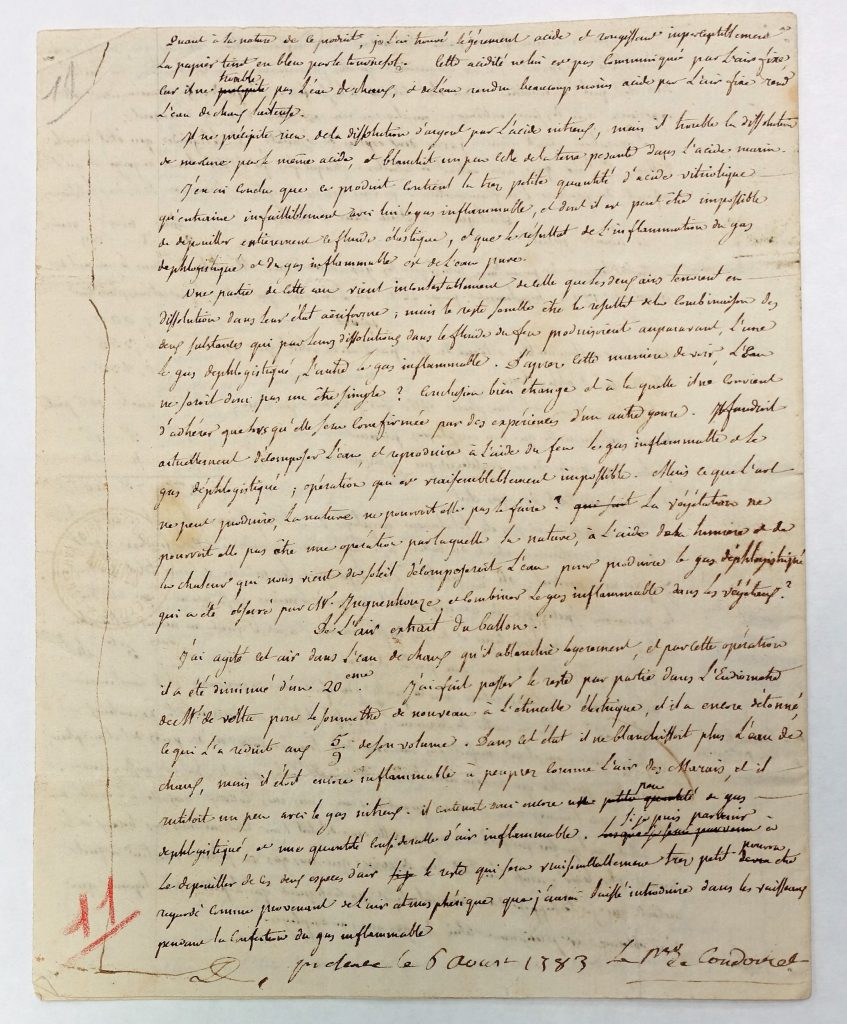 11
Quant à la nature de ce produit, je l'ai trouvé légèrement acide et rougissant imperceptiblement
Le papier teint en bleu par le tournesol. Cette acidité ne lui est pas communiquée par l'air fixe
car il ne trouble pas l'eau de chaux, et de l'eau rendue beaucoup moins acide par l'air fixe rend
L'eau de chaux laiteuse.
Il ne précipite rien de la dissolution d'argent par l'acide nitreux, mais il trouble la dissolution
de mercure par le même acide, et blanchit un peu celle de la terre pesante dans l'acide marin.
J'en ai conclu que ce produit contient la très petite quantité d'acide vitriolique
qu'entraine infailliblement avec lui le gas inflammable, et dont il est peut être impossible
de dépouiller entièrement ce fluide élastique, et que le résultat de l'inflammation du gas
dephlogistiqué et du gas inflammable est de l'eau pure.
Une partie de cette eau vient incontestablement de celle que les deux airs tenoient en
dissolution dans leur état aëriforme ; mais le reste semble être le résultat de la combinaison des
deux substances qui par leurs dissolutions dans le fluide du feu produisoient auparavant, l'une
le gas dephlogistiqué, l'autre le gas inflammable. D'après cette manière de voir, l'Eau
ne seroit donc pas un être simple ? Conclusion bien étrange et à la quelle il ne convient
d'adhérer que lors qu'elle sera confirmée par des expériences d'un autre genre. Il faudroit
actuellement décomposer l'eau, et reproduire à l'aide du feu le gas inflammable et le
gas déphlogistiqué ; opération qui est vraisemblablement impossible. Mais ce que l'art
ne peut produire, la nature ne pourroit elle pas le faire ? La végétation ne
pourroit elle pas être une opération par laquelle la nature, à l'aide de la lumière et de
la chaleur qui nous vient du soleil décomposeroit l'eau pour produire le gas déphlogistiqué
qui a été observé par Mr. Inguenhouze, et combiner le gas inflammable dans les végétaux ?
De l'air extrait du ballon.
J'ai agité cet air dans l'eau de chaux qu'il a blanchie légèrement, et par cette opération
il a été diminué d'un 20eme. J'ai fait passer le reste par partie dans l'Eudiometre
de Mr. de Volta pour le soumettre de nouveau à l'étincelle électrique, et il a encore détonné,
ce qui l'a réduit aux 5/9 de son volume. Dans cet état il ne blanchissoit plus l'eau de
chaux, mais il étoit encore inflammable à peuprès comme l'air des Marais, et il
rutiloit un peu avec le gas nitreux. il contenoit donc encore un peu de gas
dephlogistiqué, et une quantité considérable d'air inflammable. Si je puis parvenir à
Le depouiller de ces deux espèces d'air le reste qui sera vraisemblablement très petit pourra être
regardé comme provenant de l'air atmosphérique que j'aurai laissé introduire dans les vaisseaux
pendant la confection du gas inflammable
le 6 aoust 1783 Le Mqis de Condorcet
11